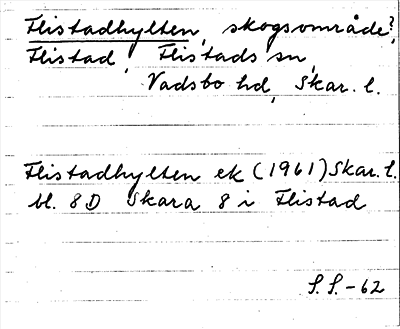 Flistadhylten, skogsområde?,
Flistad, Flistads sn,
Vadsbo hd, Skar. l.
Flistadhylten ek (1961) Skar. l.
bl. 8D Skara 8 i Flistad
S.S.-62